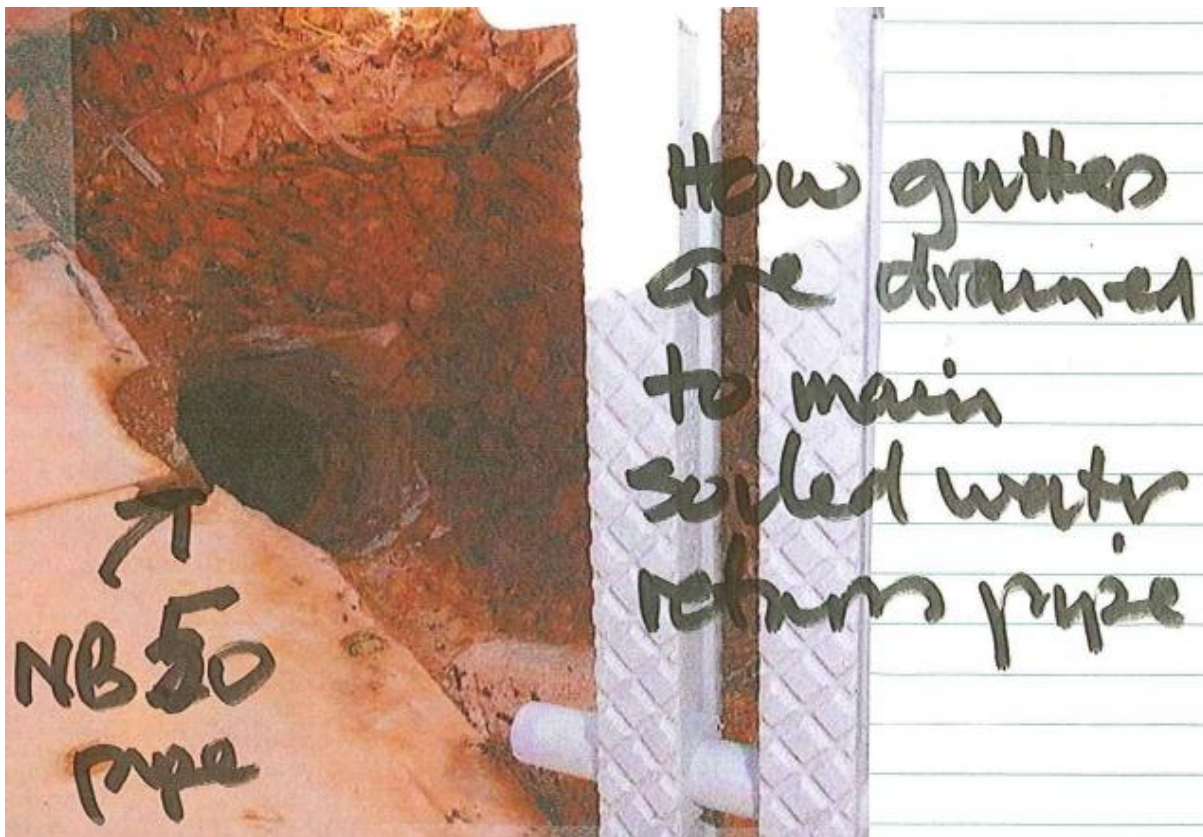 How gutters
are drained
to main
soiled water
return pipe
NB 50
pipe